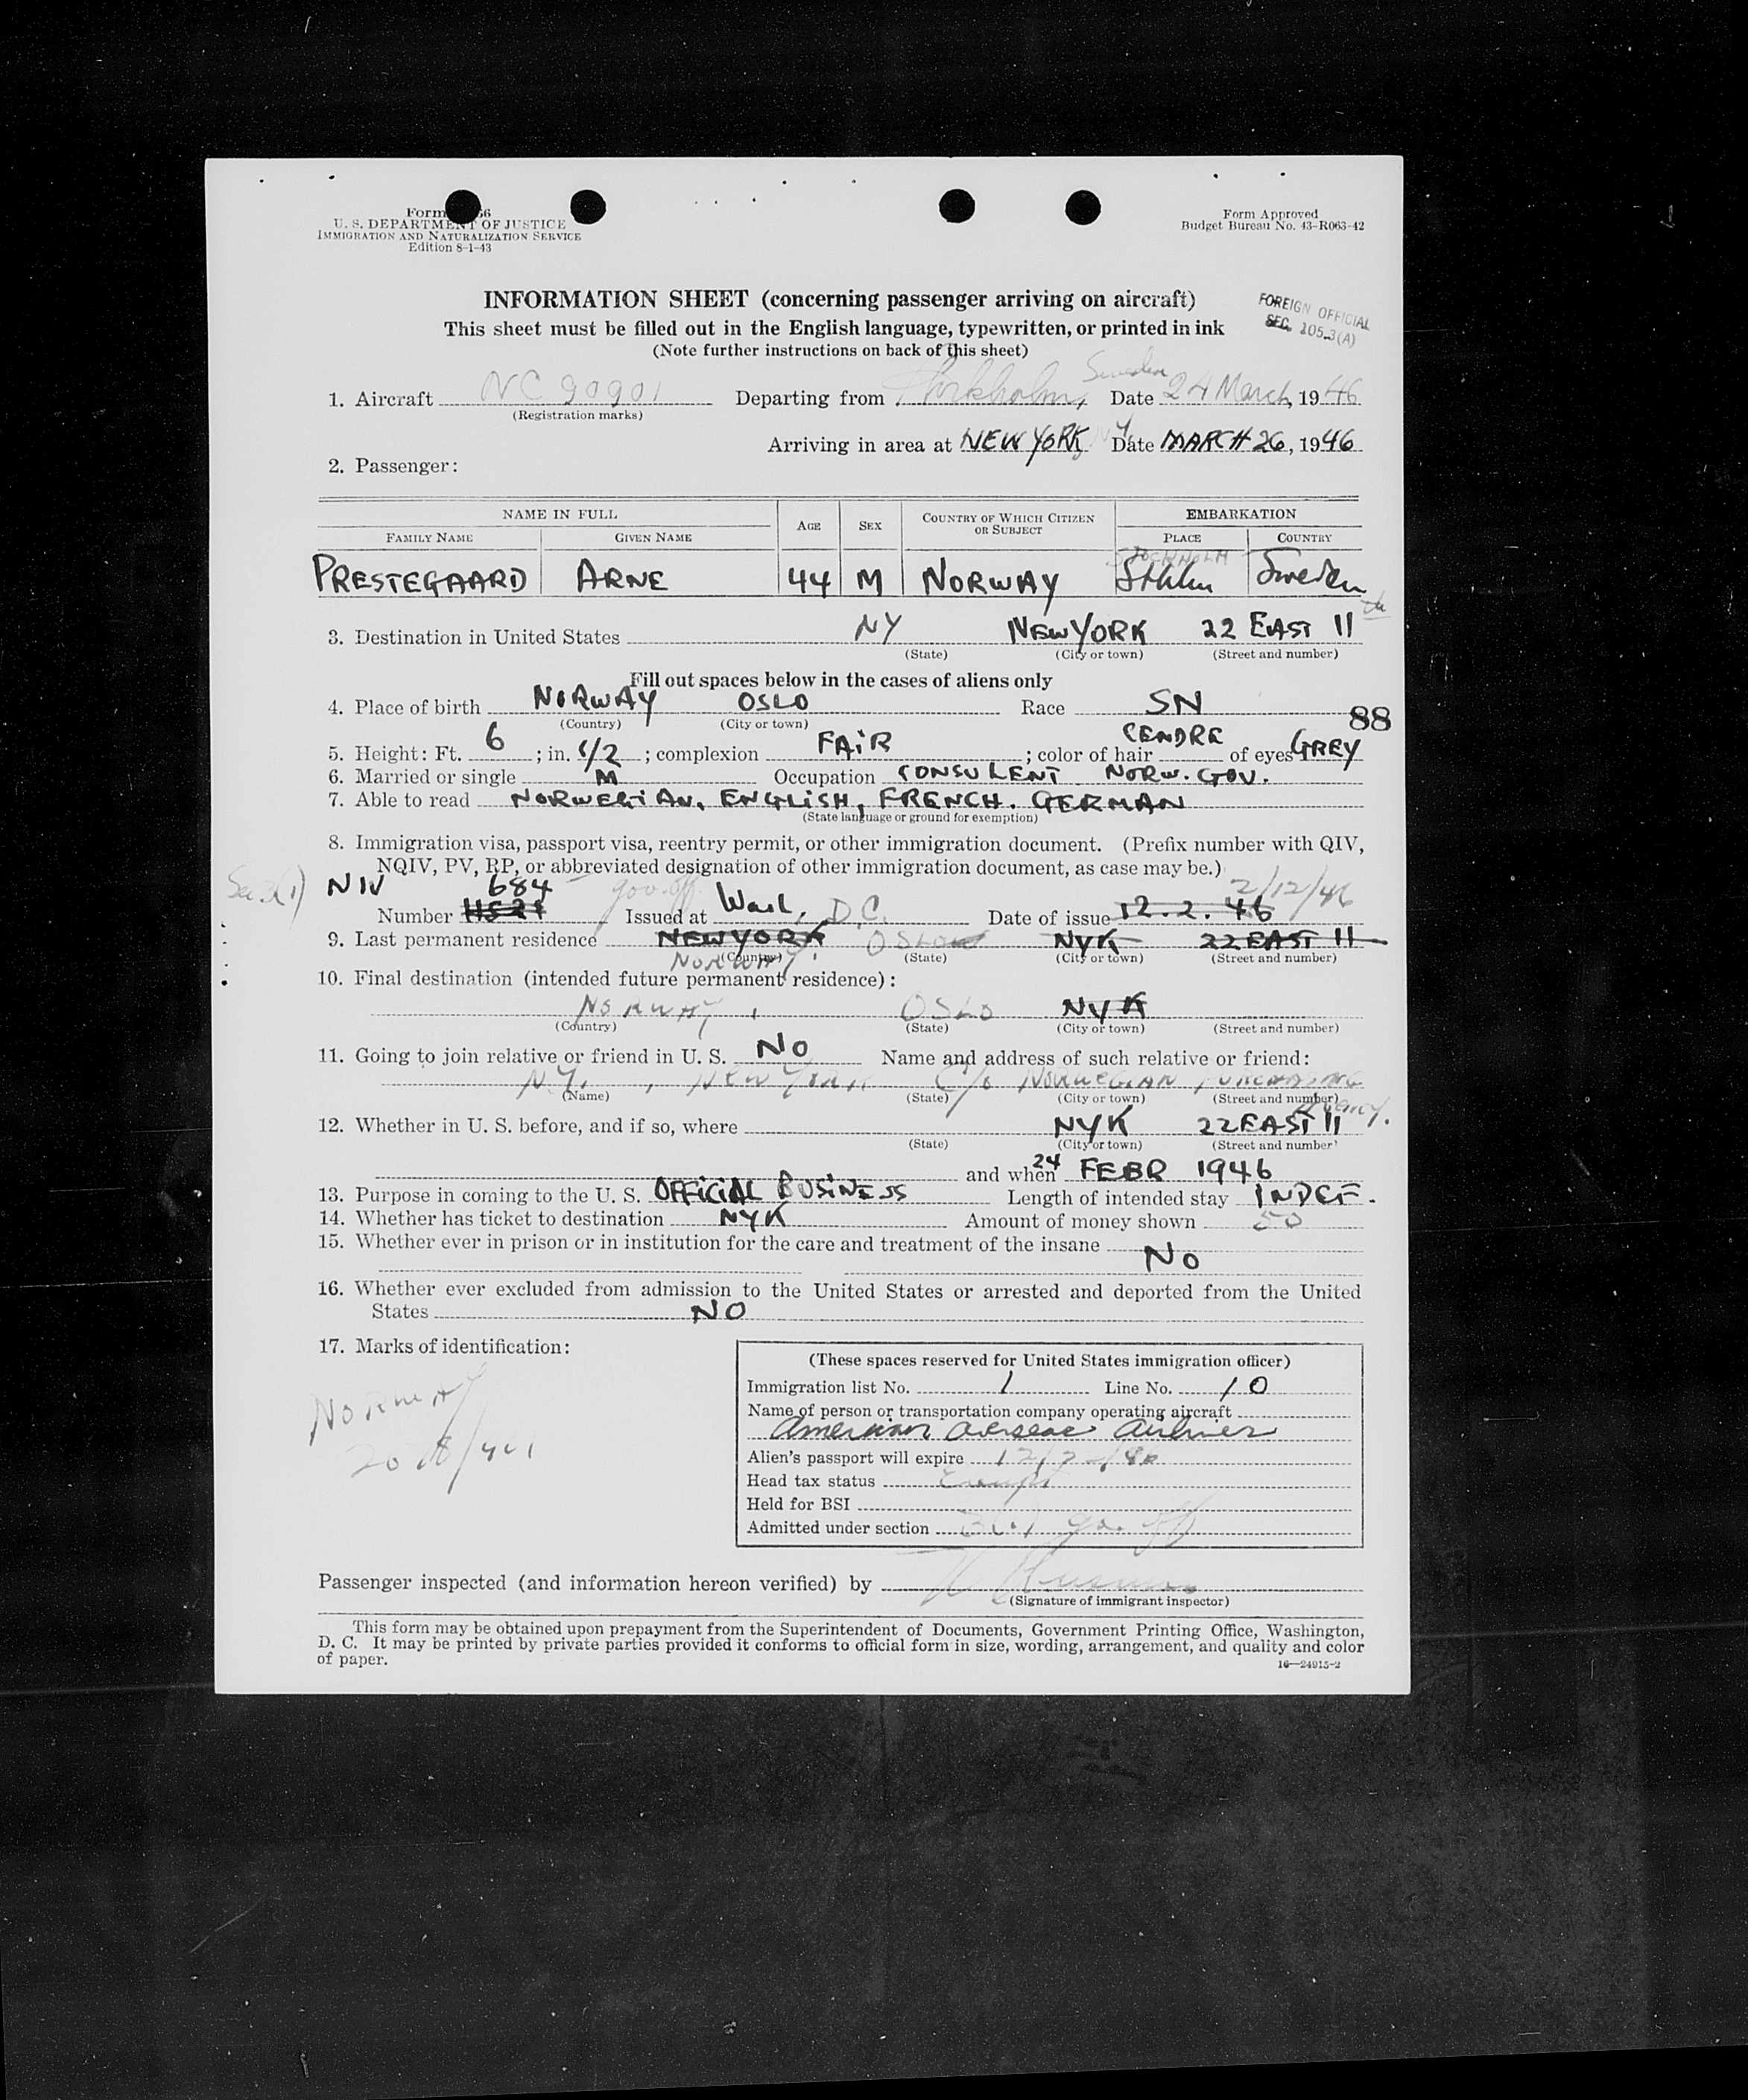 Form 66
U. S. DEPARTMENT OF JUSTICE
IMMIGRATION AND NATURALIZATION SERVICE
Edition 8-1-43
Form Approved
Budget Bureau No. 43-R063-42
INFORMATION SHEET (concerning passenger arriving on aircraft)
This sheet must be filled out in the English language, typewritten, or printed in ink
(Note further instructions on back of this sheet)
FOREIGN OFFICIAL
SEC. 105.3(A)
1. Aircraft NC 90901 Departing from Stockholm, Sweden Date 24 March, 1946
(Registration marks)
Arriving in area at NEW YORK, NY, Date MARCH 26, 1946
2. Passenger:
NAME IN FULL AGE SEX COUNTRY OF WHICH CITIZEN OR SUBJECT EMBARKATION
FAMILY NAME GIVEN NAME PLACE COUNTRY
STOCKHOLM
PRESTEGAARD ARNE 44 M NORWAY Sthlm Sweden
3. Destination in United States NY NEW YORK 22 EAST 11 th
(State) (City or town) (Street and number)
Fill out spaces below in the cases of aliens only
4. Place of birth NORWAY OSLO Race SN
(Country) (City or town)
88
5. Height: Ft. 6 ; in. 1/2 ; complexion FAIR ; color of hair CENDRE of eyes GREY
6. Married or single M Occupation CONSULENT NORW. GOV.
7. Able to read NORWEGIAN, ENGLISH, FRENCH. GERMAN
(State language or ground for exemption)
8. Immigration visa, passport visa, reentry permit, or other immigration document. (Prefix number with QIV,
NQIV, PV, RP, or abbreviated designation of other immigration document, as case may be.)
NIV 684 gov. off. 2/12/46
Number Issued at Wash. D.C. Date of issue 12.2.46
9. Last permanent residence NEW YORK OSLO NYK 22 EAST 11
NORWAY (Country) (State) (City or town) (Street and number)
10. Final destination (intended future permanent residence):
NORWAY, OSLO NYK
(Country) (State) (City or town) (Street and number)
11. Going to join relative or friend in U. S. NO Name and address of such relative or friend:
N.Y., NEW YORK C/o NORWEGIAN PURCHASING
(Name) (State) (City or town) (Street and number)
Agency.
12. Whether in U. S. before, and if so, where NYK 22 EAST 11
(State) (City or town) (Street and number)
and when 24 FEBR 1946
13. Purpose in coming to the U. S. OFFICIAL BUSINESS Length of intended stay INDEF.
14. Whether has ticket to destination NYK Amount of money shown 50
15. Whether ever in prison or in institution for the care and treatment of the insane NO
16. Whether ever excluded from admission to the United States or arrested and deported from the United
States NO
17. Marks of identification:
NORWAY
(These spaces reserved for United States immigration officer)
Immigration list No. 1 Line No. 10
Name of person or transportation company operating aircraft
American Overseas Airlines
Alien's passport will expire
Head tax status Exempt
Held for BSI
Admitted under section 3(1) gov. off
Passenger inspected (and information hereon verified) by
(Signature of immigrant inspector)
This form may be obtained upon prepayment from the Superintendent of Documents, Government Printing Office, Washington,
D. C. It may be printed by private parties provided it conforms to official form in size, wording, arrangement, and quality and color
of paper.
16—24915-2